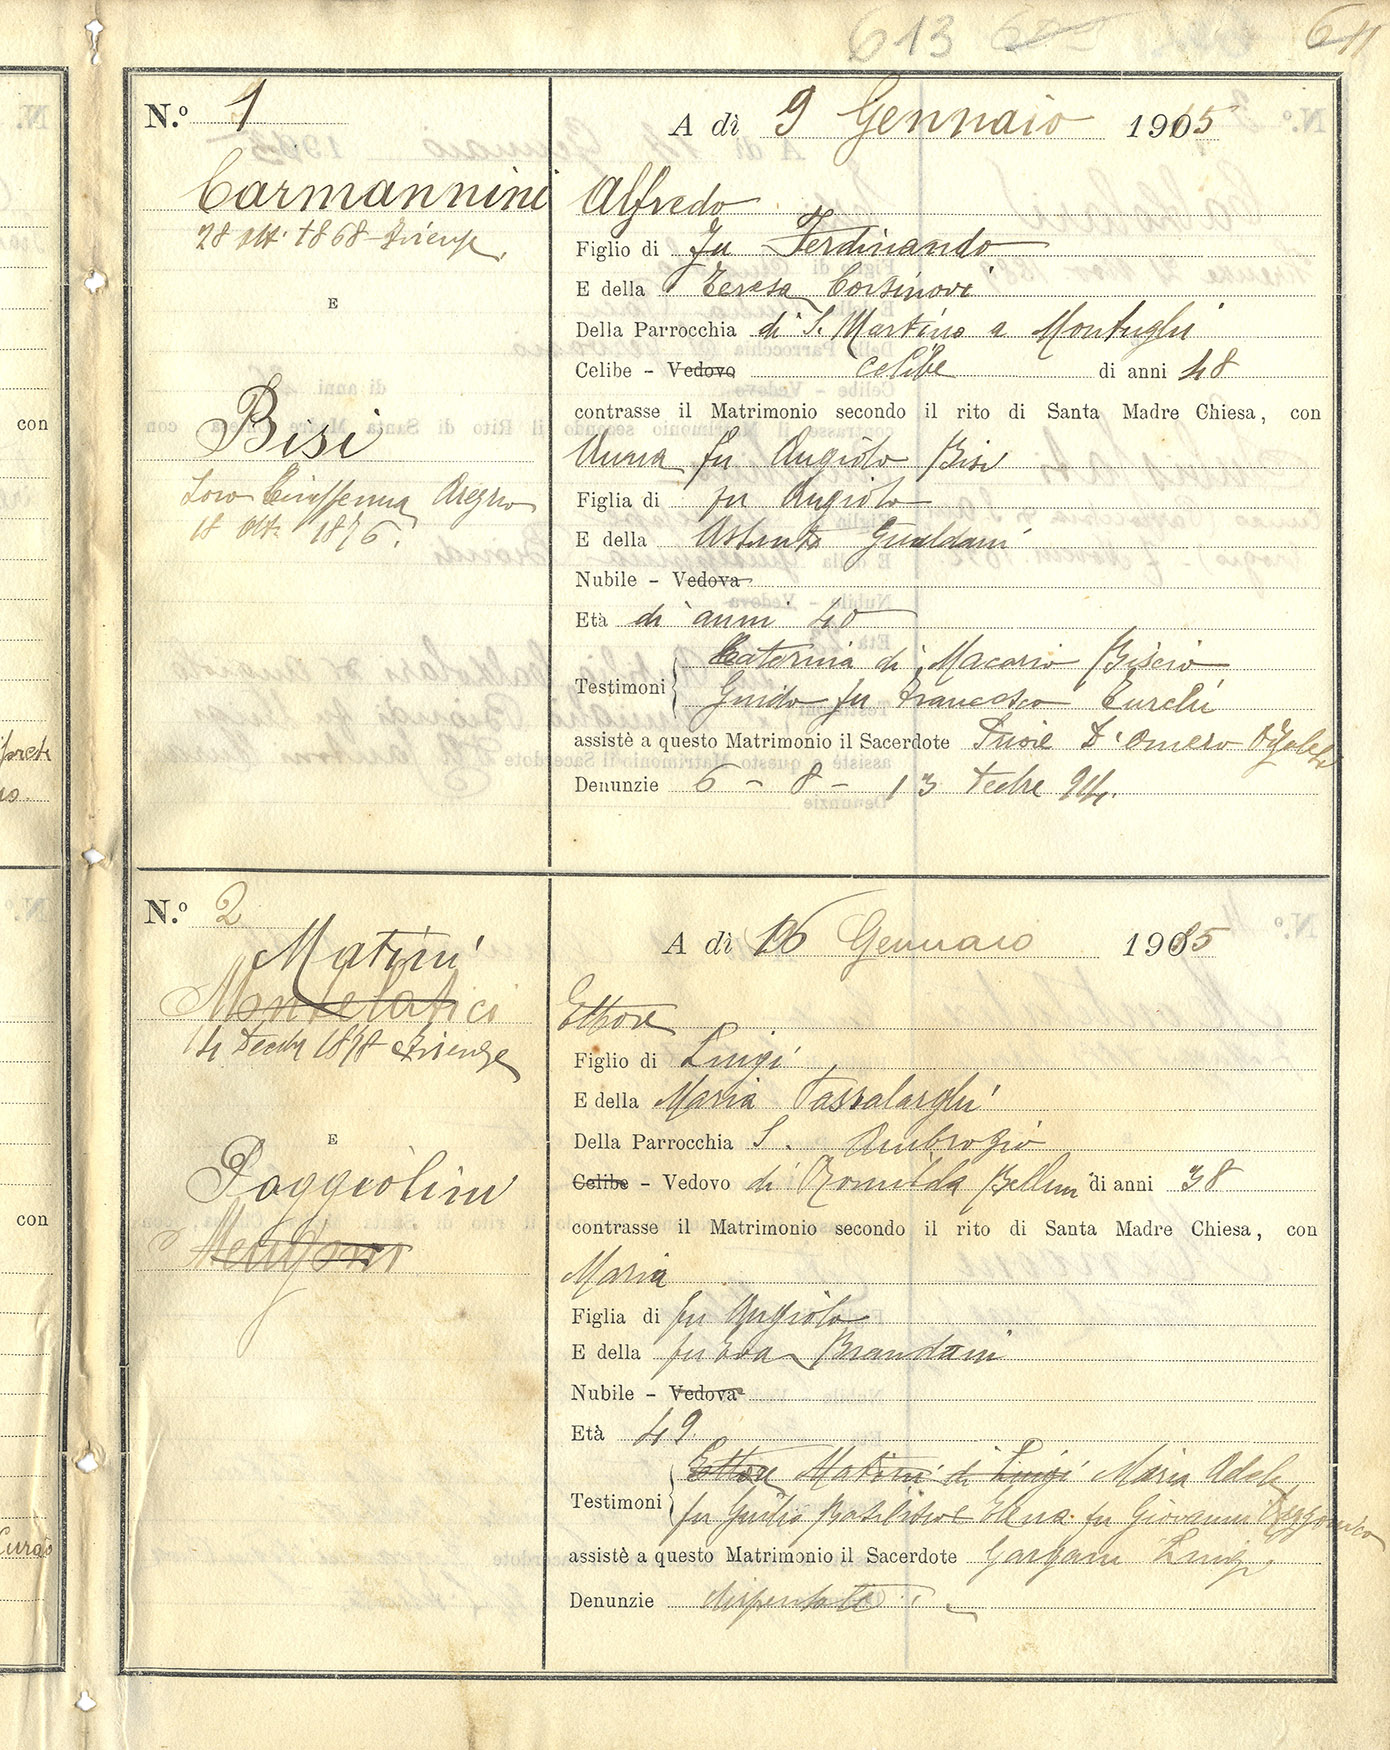 613 611
N.º 1
Carmannini
28 Ott. 1868 Firenze
E
Bisi
Loro Ciuffenna Arezzo
18 Ott. 1876.
A dì 9 Gennaio 1915
Alfredo
Figlio di fu Ferdinando
E della Teresa Corsinovi
Della Parrocchia di S. Martino a Montughi
Celibe - Vedovo celibe di anni 48
contrasse il Matrimonio secondo il rito di Santa Madre Chiesa, con
Anna fu Angiolo Bisi
Figlia di fu Angiolo
E della Assunta Gualdani
Nubile - Vedova
Età di anni 40
Caterina di Macario Biscio
Testimoni
Guido fu Francesco Turchi
assistè a questo Matrimonio il Sacerdote Priore D'Omero
Denunzie 6 - 8 - 13 Xcbre 914.
N.º 2
Matini
Montelatici
14 Decbr 1878 Firenze
E
Poggiolini
Mengoni
A dì 16 Gennaio 1915
Ettore
Figlio di Luigi
E della Maria Passalarghi
Della Parrocchia S. Ambrogio
Celibe - Vedovo di Romilda Bellini di anni 38
contrasse il Matrimonio secondo il rito di Santa Madre Chiesa, con
Maria
Figlia di fu Angiolo
E della fu Eva Brandani
Nubile - Vedova
Età 49.
Ettore Matini di Luigi Maria Adele
Testimoni
fu Giulio Elena fu Giovanni
assistè a questo Matrimonio il Sacerdote Gargani Luigi
Denunzie dispensate
con
con